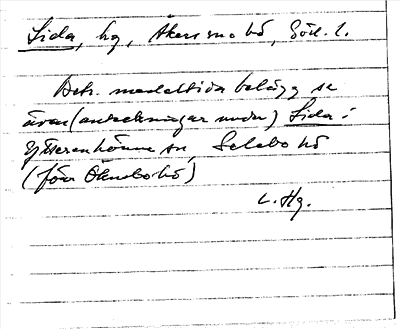 Lida, hg, Åkers sn o hd, Södl. l.
Betr. medeltida belägg se
även (anteckningar under) Lida i
Ytterenhörna sn, Selebo hd
(förr Öknebo hd)
L. Hg.